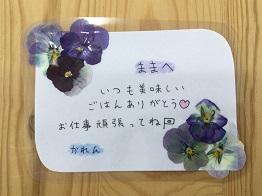 ままへ
いつも美味しい
ごはんありがとう♡
お仕事頑張ってね
かれん